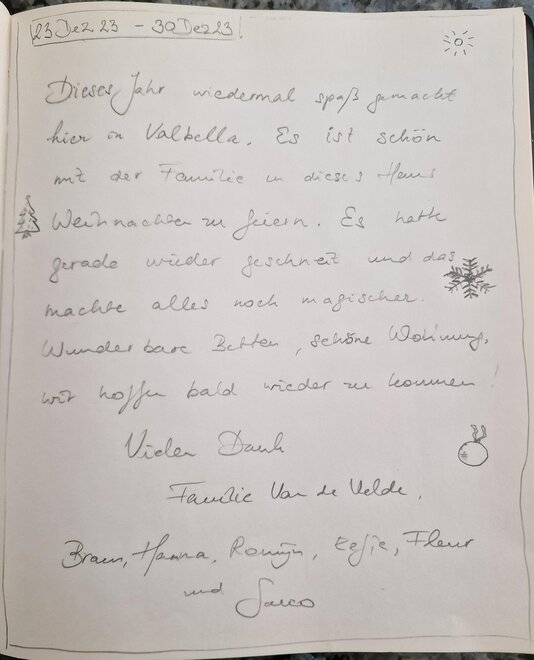 23 Dez 23 - 30 Dez 23
Dieses Jahr wiedermal spaß gemacht
hier in Valbella. Es ist schön
mit der Familie in dieses Haus
Weihnachten zu feiern. Es hatte
gerade wieder geschneit und das
machte alles noch magischer.
Wunderbare Betten, schöne Wohnung,
wir hoffen bald wieder zu kommen!
Vielen Dank
Familie Van de Velde,
Bram, Hanna, Romijn, Eefje, Fleur
und